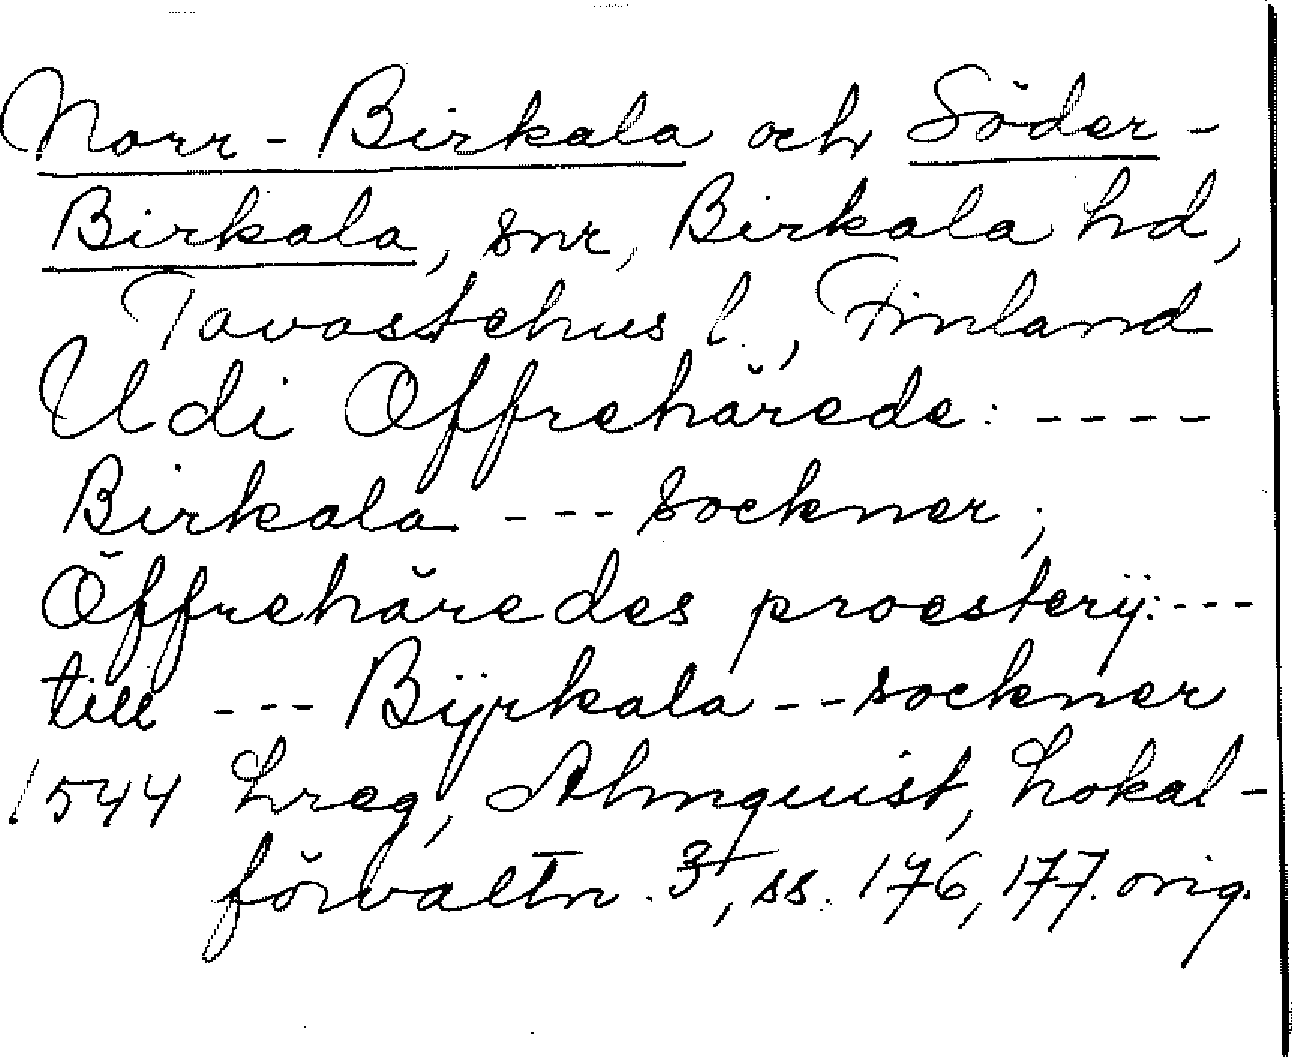 Norr-Birkala och Söder-
Birkala, snr, Birkala hd,
Tavastehus l., Finland
Udi Öffrehärede: ----
Birkala --- sockner;
Öffrehäredes proestery:---
till --- Bÿrkala -- sockner
1544 Lreg, Almquist, Lokal-
förvaltn. 3, ss. 176, 177. orig.